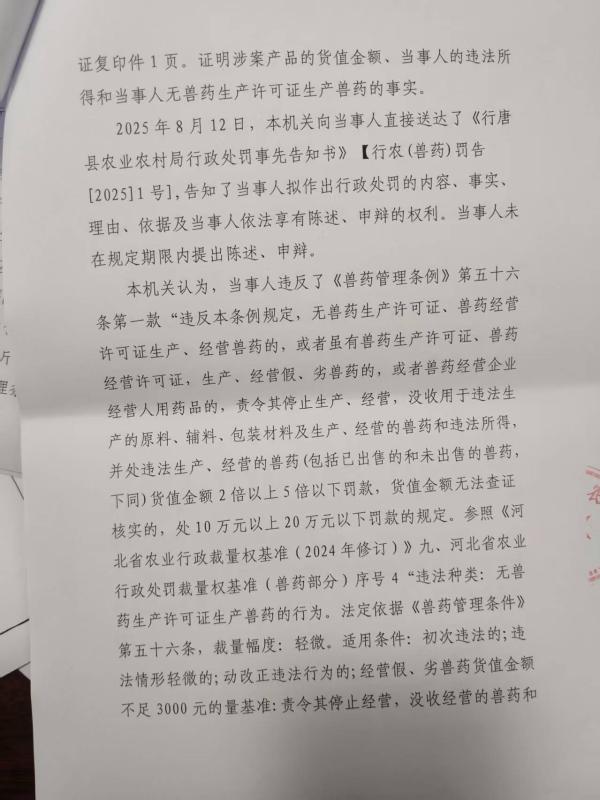 证复印件1页。证明涉案产品的货值金额、当事人的违法所
得和当事人无兽药生产许可证生产兽药的事实。
2025年8月12日，本机关向当事人直接送达了《行唐
县农业农村局行政处罚事先告知书》【行农(兽药)罚告
[2025]1号],告知了当事人拟作出行政处罚的内容、事实、
理由、依据及当事人依法享有陈述、申辩的权利。当事人未
在规定期限内提出陈述、申辩。
本机关认为，当事人违反了《兽药管理条例》第五十六
条第一款“违反本条例规定，无兽药生产许可证、兽药经营
许可证生产、经营兽药的，或者虽有兽药生产许可证、兽药
经营许可证，生产、经营假、劣兽药的，或者兽药经营企业
经营人用药品的，责令其停止生产、经营，没收用于违法生
产的原料、辅料、包装材料及生产、经营的兽药和违法所得，
并处违法生产、经营的兽药(包括已出售的和未出售的兽药，
下同)货值金额2倍以上5倍以下罚款，货值金额无法查证
核实的，处10万元以上20万元以下罚款的规定。参照《河
北省农业行政裁量权基准（2024年修订）》九、河北省农业
行政处罚裁量权基准（兽药部分）序号4“违法种类：无兽
药生产许可证生产兽药的行为。法定依据《兽药管理条件》
第五十六条，裁量幅度：轻微。适用条件：初次违法的；违
法情形轻微的；动改正违法行为的；经营假、劣兽药货值金额
不足3000元的量基准：责令其停止经营，没收经营的兽药和